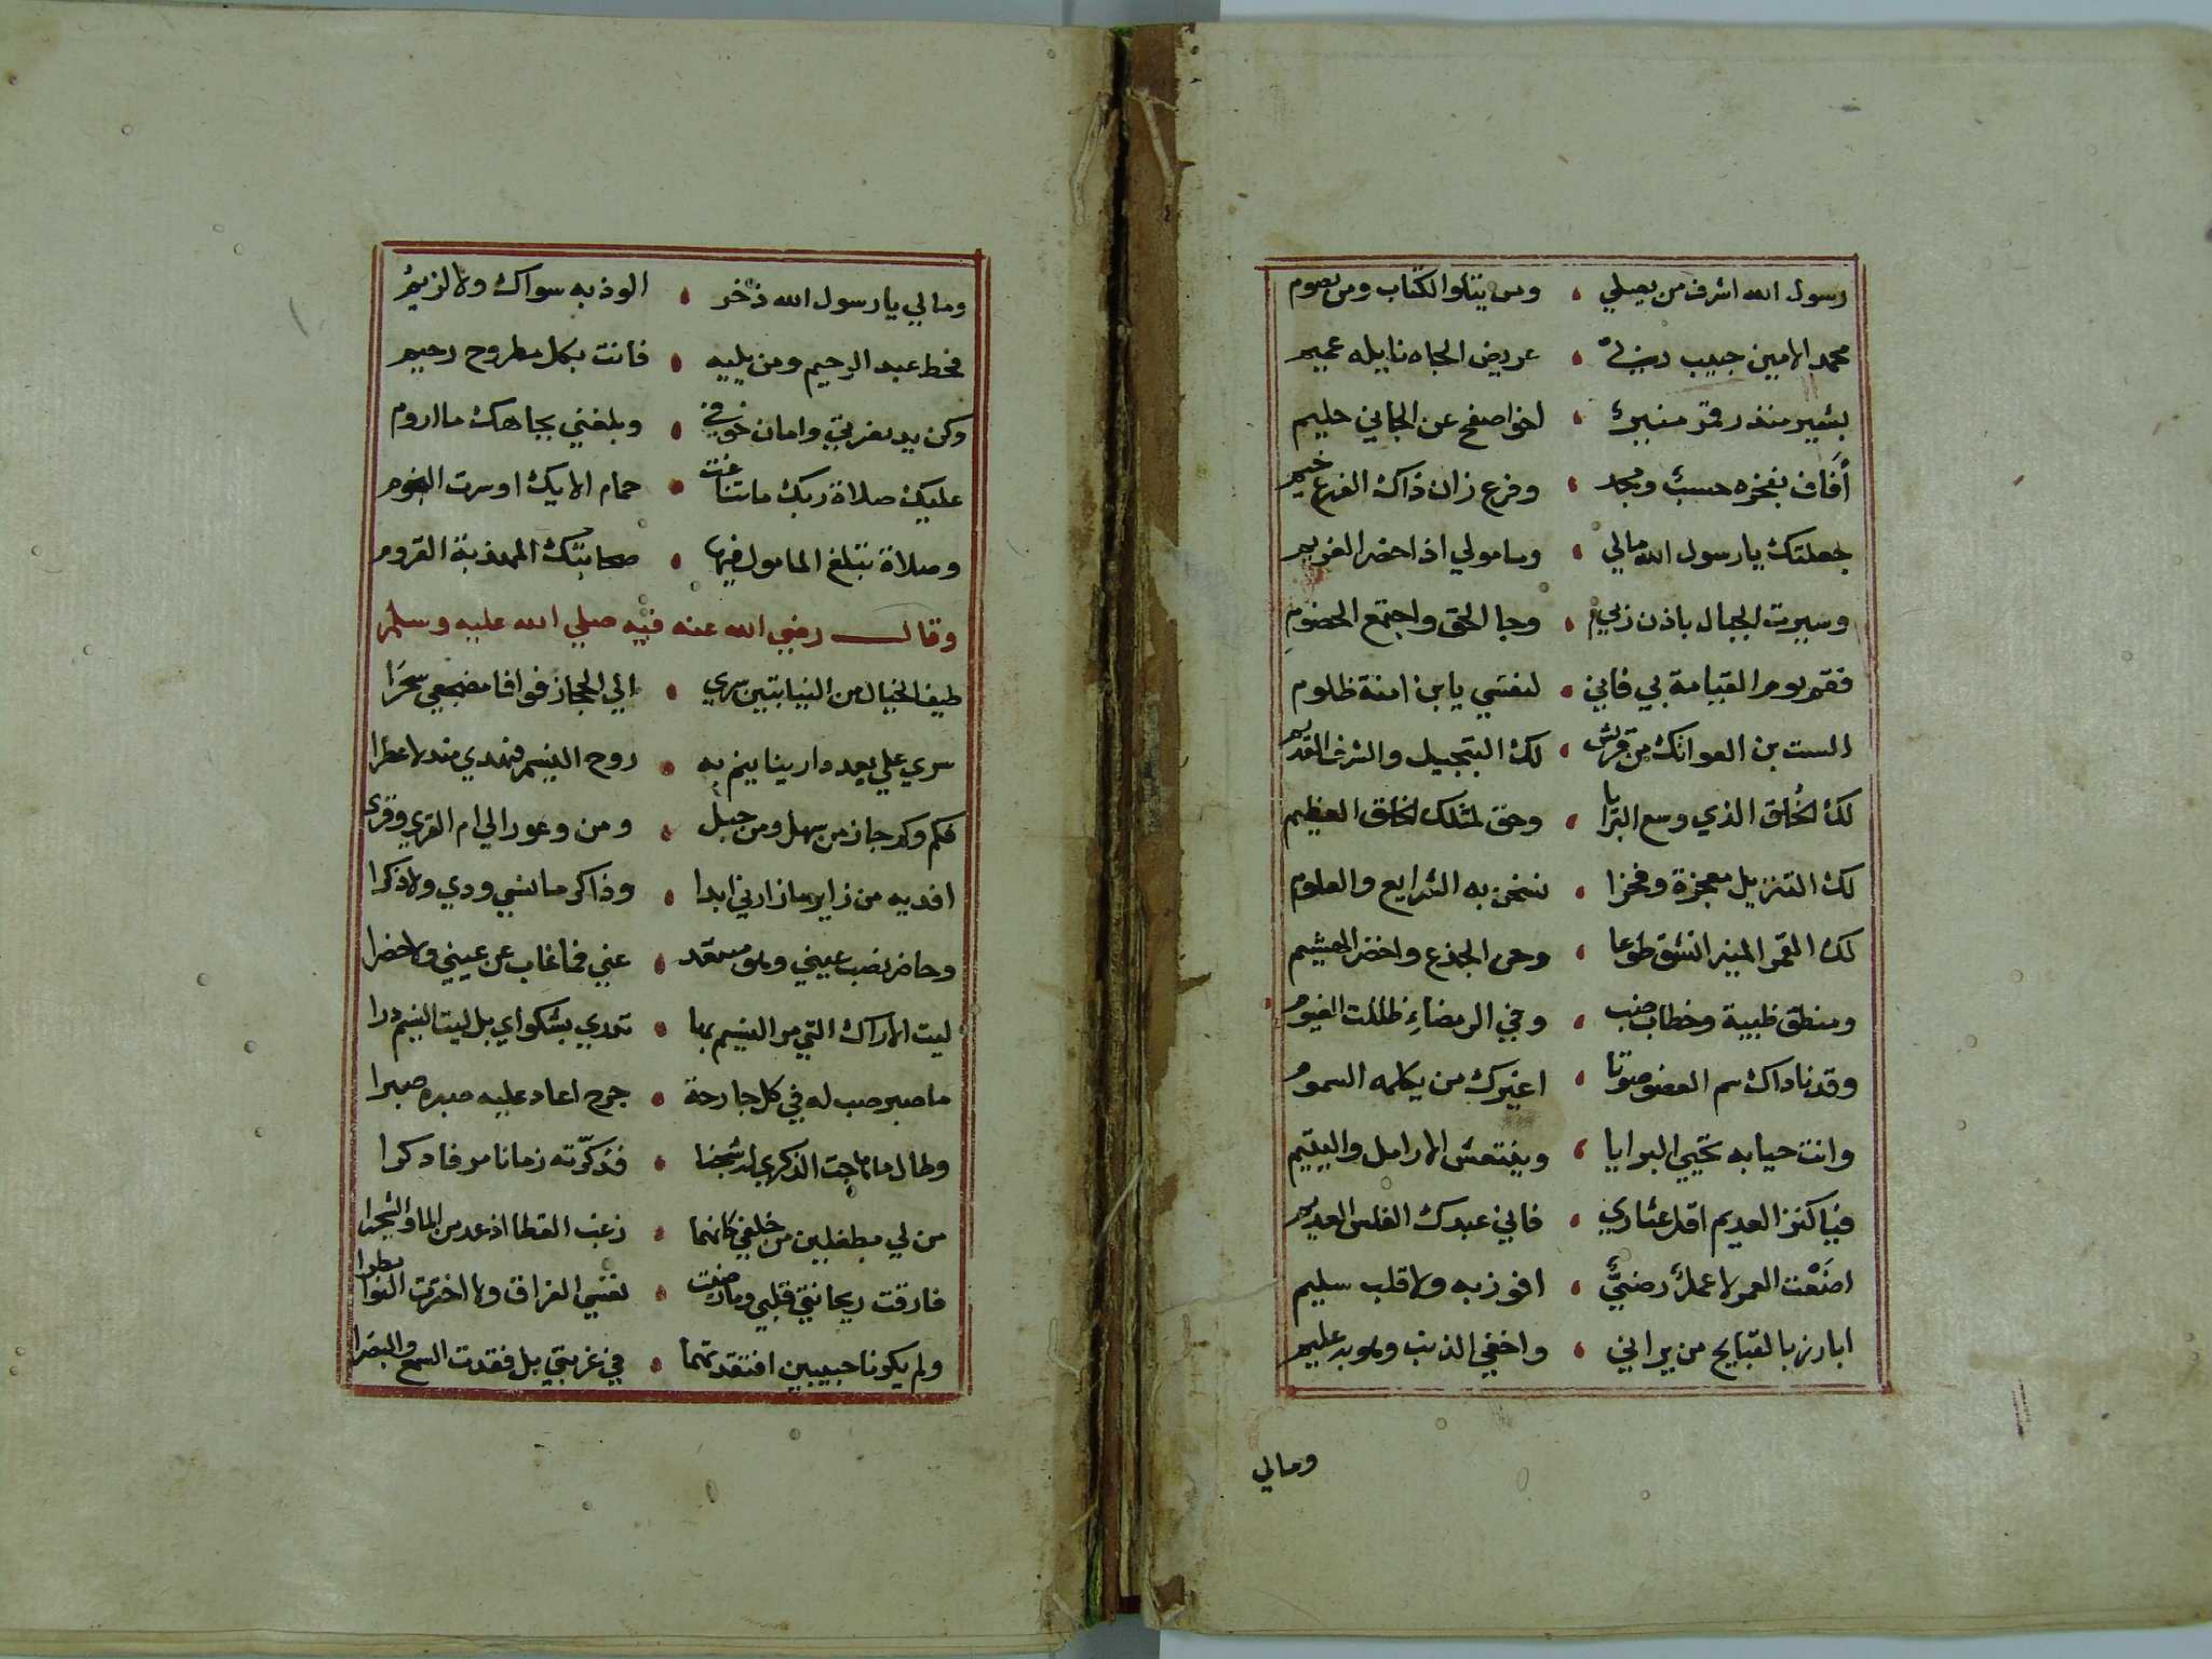 رسول الله اشرف من يصلي ، ومن يتلوا الكتاب ومن يصوم
محمد الامين حبيب ربي ، عريض الجاه نايله عميم
بشير منذر قمر منير ، اخو اصفح عن الجاني حليم
أفاف بفخره حسب ومجد ، وفرع زان ذاك الفرع خيم
جعلتك يا رسول الله مالي ، ومامولي اذا حضر الغريم
وسيرت الجبال باذن ربي ، وجا الحق واجتمع الخصوم
فقم يوم القيامة بي فاني ، لنفسي يا بن امنة ظلوم
الست بن العواتك من قريش ، لك التبجيل والشرف القديم
لك الخلق الذي وسع البرايا ، وحق لمثلك الخلق العظيم
لك التنزيل معجزة وفخرا ، نسخن به الشرايع والعلوم
لك القمر المنير انشق طوعا ، وحن الجذع واخضر الهشيم
ومنطق ظبية وخطاب ضب ، وفي الرمضاءِ ظللت الغيوم
وقد ناداك سم العضو صوتا ، اغيرك من يكلمه السموم
وانت حيا به تحيي البرايا ، وينتعش الارامل واليتيم
فيا كنز العديم اقل عثاري ، فاني عبدك الفلس العديم
اضَعْت العمر لا عملٌ رضيٌّ ، افوز به ولا قلب سليم
ابارز بالقبايح من يراني ، واخفي الذنب وهو به عليم
ومالي
ومالي يا رسول الله ذخر ، الوذ به سواك ولا لزيم
فحط عبد الرحيم ومن يليه ، فانت بكل مطروح رحيم
وكن يد بغربتي وامان خوفي ، وبلغني بجاهك ما اروم
عليك صلاة ربك ما تناغت ، حمام الايك او سرت النجوم
وصلاة تبلغ المامول فيها ، صحابتك المهذبة القروم
وقال رضي الله عنه فيه صلي الله عليه وسلم
طيف الخيال من النيابتين سري ، الي الحجاز فوافا مضجعي سحَرَا
سري علي بعد دارينا ينم به ، روح النسيم فيهدي مندلا عطرا
فكم وكم جاز من سهل ومن جبل ، ومن وعور الي ام القري وقري
افديه من زاير ما زارني ابدا ، وذاكر ما نسي ودي ولا ذكرا
وحاضر نصب عيني وهو مبتعد ، عني فما غاب عن عيني ولا حضرا
ليت الاراك التي مر النسيم بها ، تهدي بشكواي بل ليت النسيم درا
ما صبر صب له في كل جارحة ، جرح اعاد عليه صبره صبرا
وطال ما هاجت الذكري له شجنا ، فذكّرته زمانا مر فادكرا
من لي بطفلين من خلفي كانهما ، زغب القطا اذ عدمن الما والشجرا
فارقت ريحانتي قلبي وما رضيت ، نفسي الفراق ولا اخترت النوا بطرا
ولم يكونا حبيبين افتقدتهما ، في غربتي بل فقدت السمع والبصرا